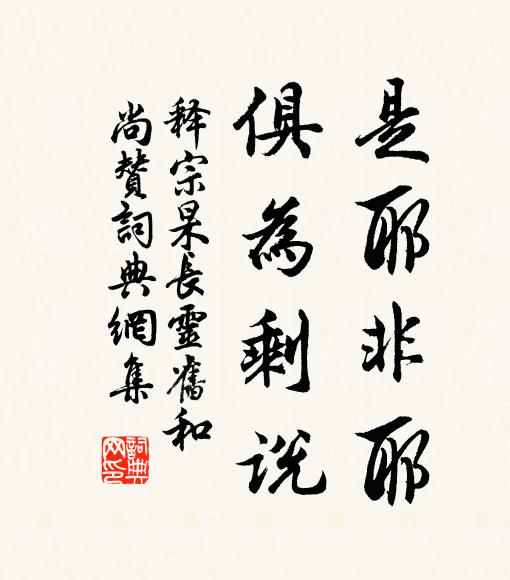 是耶非耶
俱為剩說
释宗杲長靈舊和
尚贊詞典網集
詞典
网印